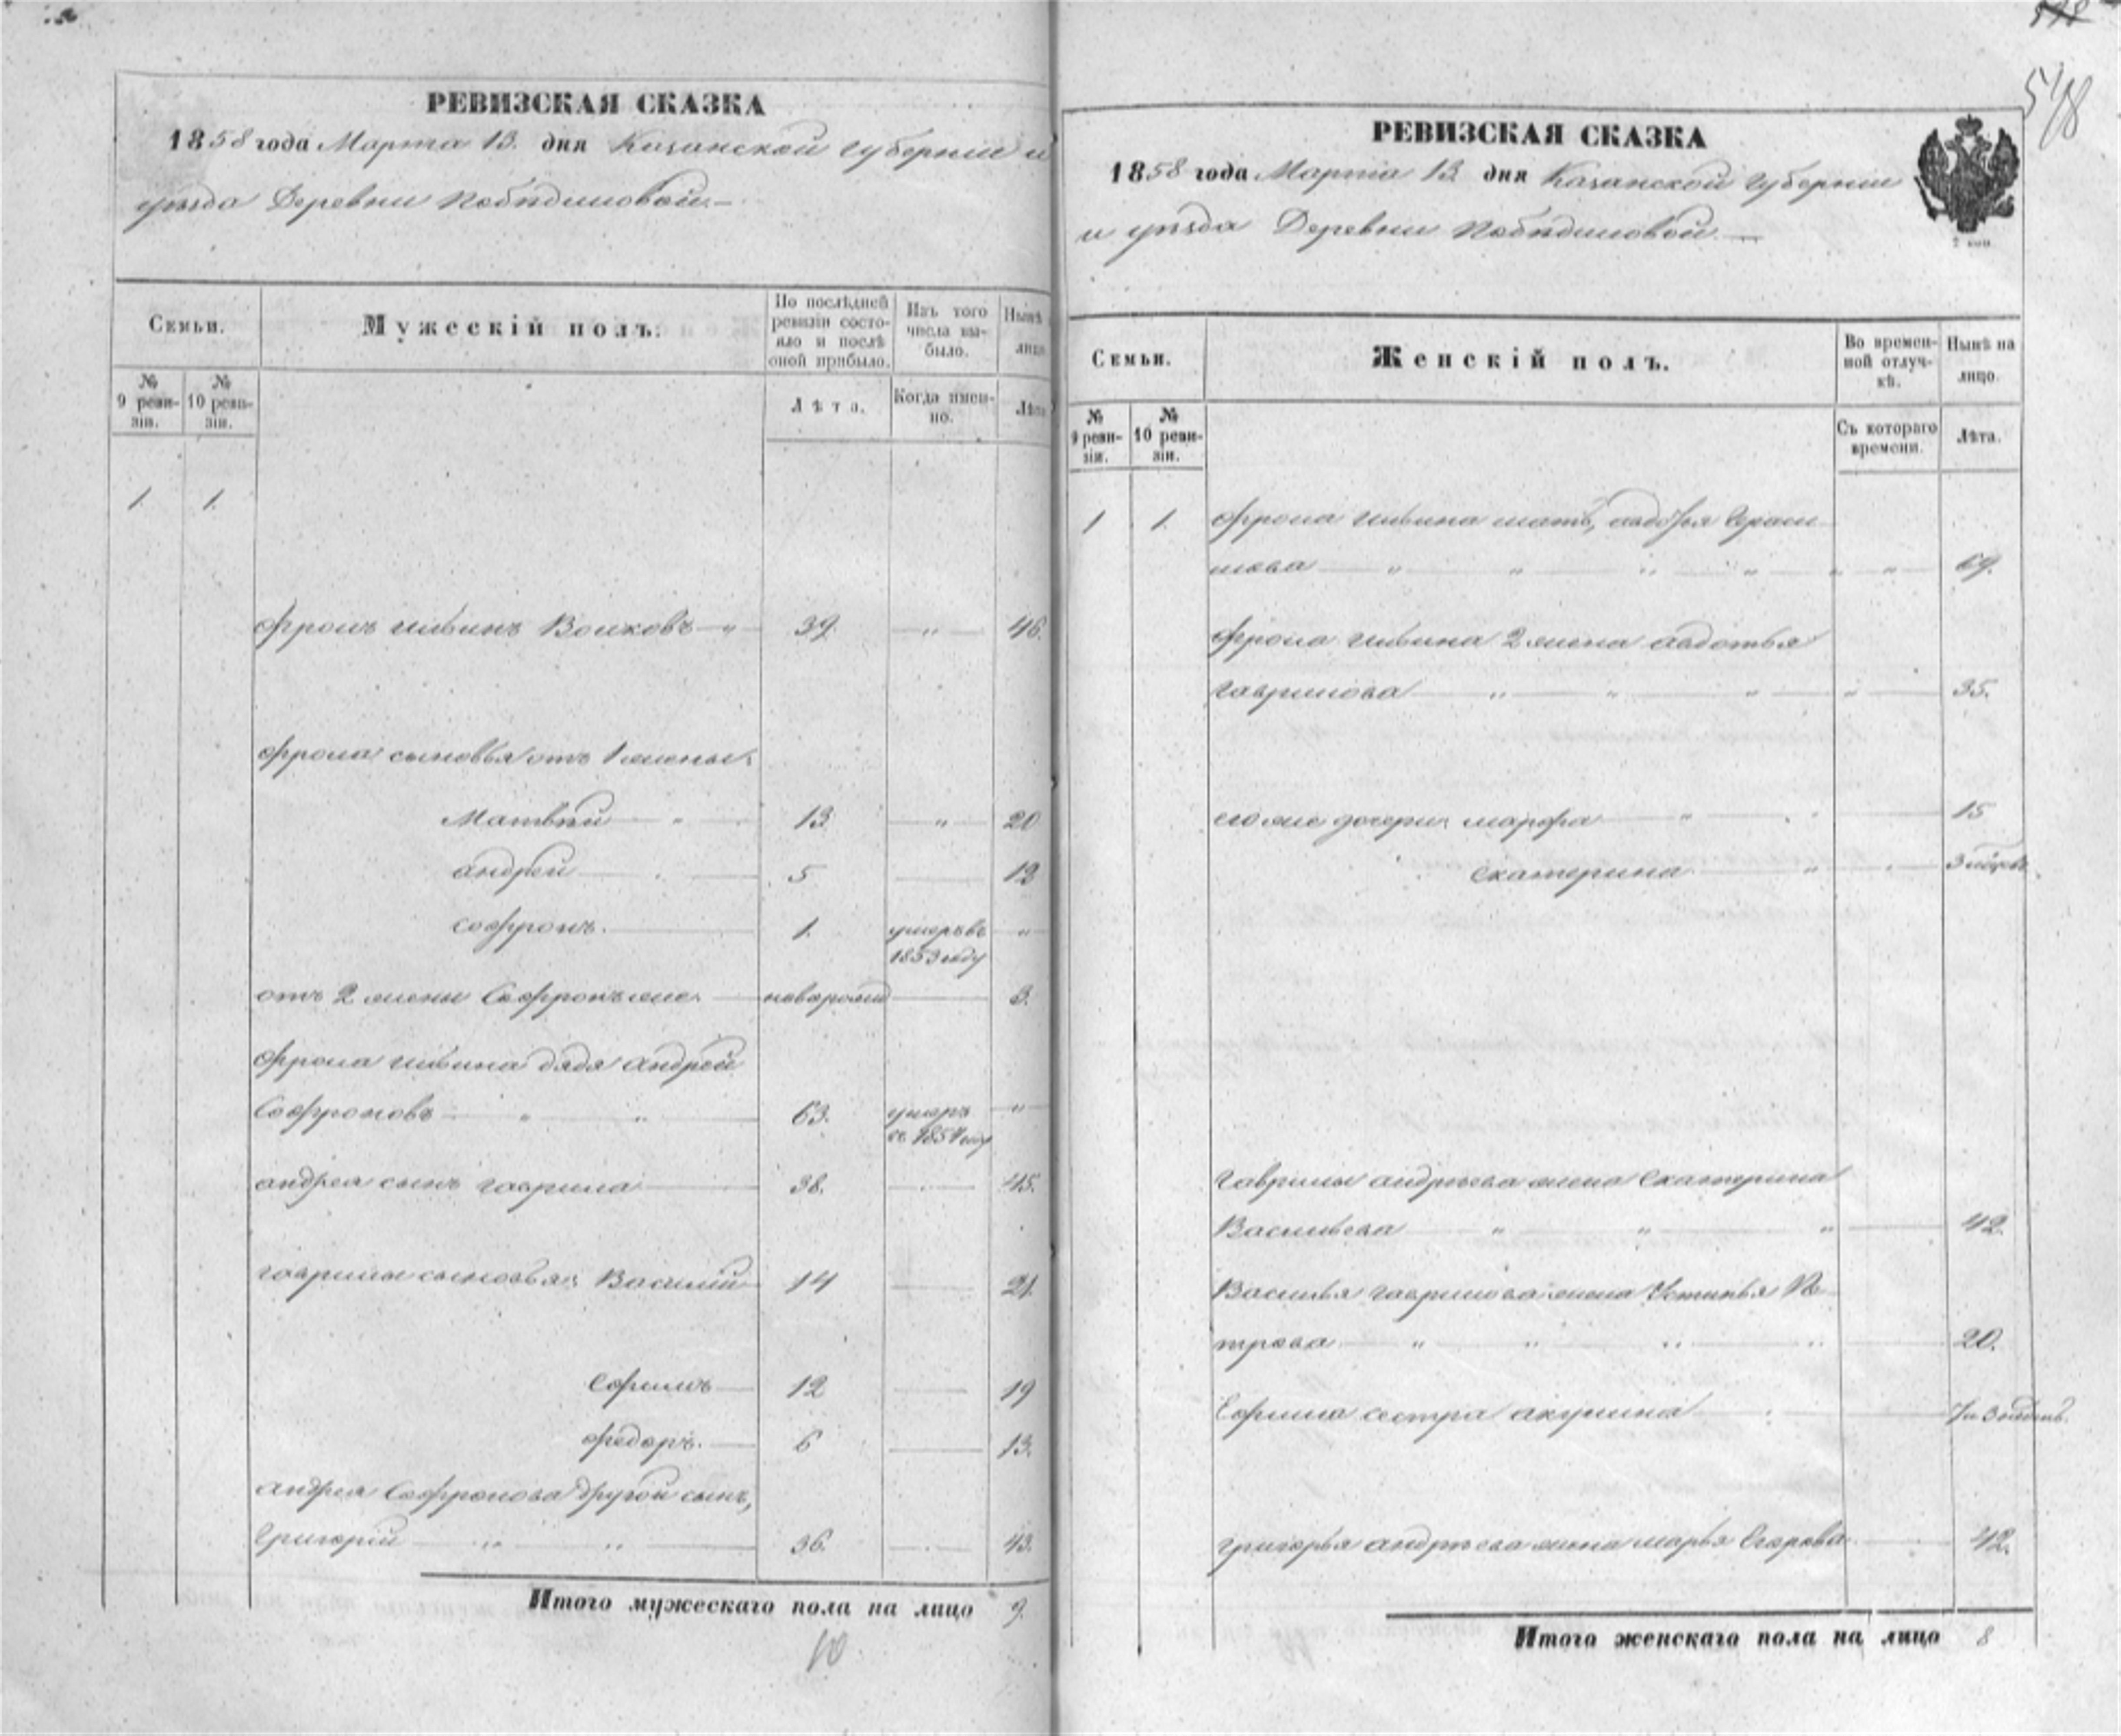 РЕВИЗСКАЯ СКАЗКА
1858 года Марта 13. дня Казанской губернии и
уѣзда Деревни Побѣдиловой.—
Семьи.
Мужескій полъ.
По послѣдней ревизіи состояло и послѣ оной прибыло.
Изъ того числа выбыло.
Нынѣ лицо
№ 9 ревизіи.
№ 10 ревизіи.
Лѣта.
Когда именно.
Лѣта
1. 1.
Фролъ Ильинъ Волковъ — " 39. — " — 46.
Фрола сыновья отъ 1 жены:
Матвѣй — " 13. — " — 20
Андрей 5 — 12
Софронъ. 1. умеръ въ "
1853 году
отъ 2 жены Софронъ же. новорожд — 3.
Фрола Ильина дядя Андрей
Софроновъ — " " 63. умеръ "
въ году
Андрея сынъ Гаврила 38. — 45.
Гаврилы сыновья: Василий 14 — 21.
Ефимъ 12 — 19
Федоръ. 6 — 13.
Андрея Софронова другой сынъ,
Григорій " " 36. — 43.
Итого мужескаго пола на лицо 9.
10
518
РЕВИЗСКАЯ СКАЗКА
1858 года Марта 13. дня Казанской губерніи
и уѣзда Деревни Побѣдиловой —
Семьи.
Женскій полъ.
Во временной отлучкѣ.
Нынѣ на лицо.
№ 9 ревизіи.
№ 10 ревизіи.
Съ котораго времени.
Лѣта.
1 1. Фрола Ильина мать, Авдотья Герасимова
" " " " " " 69.
Фрола Ильина 2 жена Авдотья
Гаврилова " " " " 35.
его же дочери: Марфа " 15
Екатерина " 3
Гаврилы Андрѣева жена Екатерина
Васильева " " " 42.
Василья Гаврилова жена Устинья Пе-
трова " " " " 20.
Ефима сестра Акулина
Григорья Андрѣева жена Марья Егорова 42.
Итого женскаго пола на лицо 8